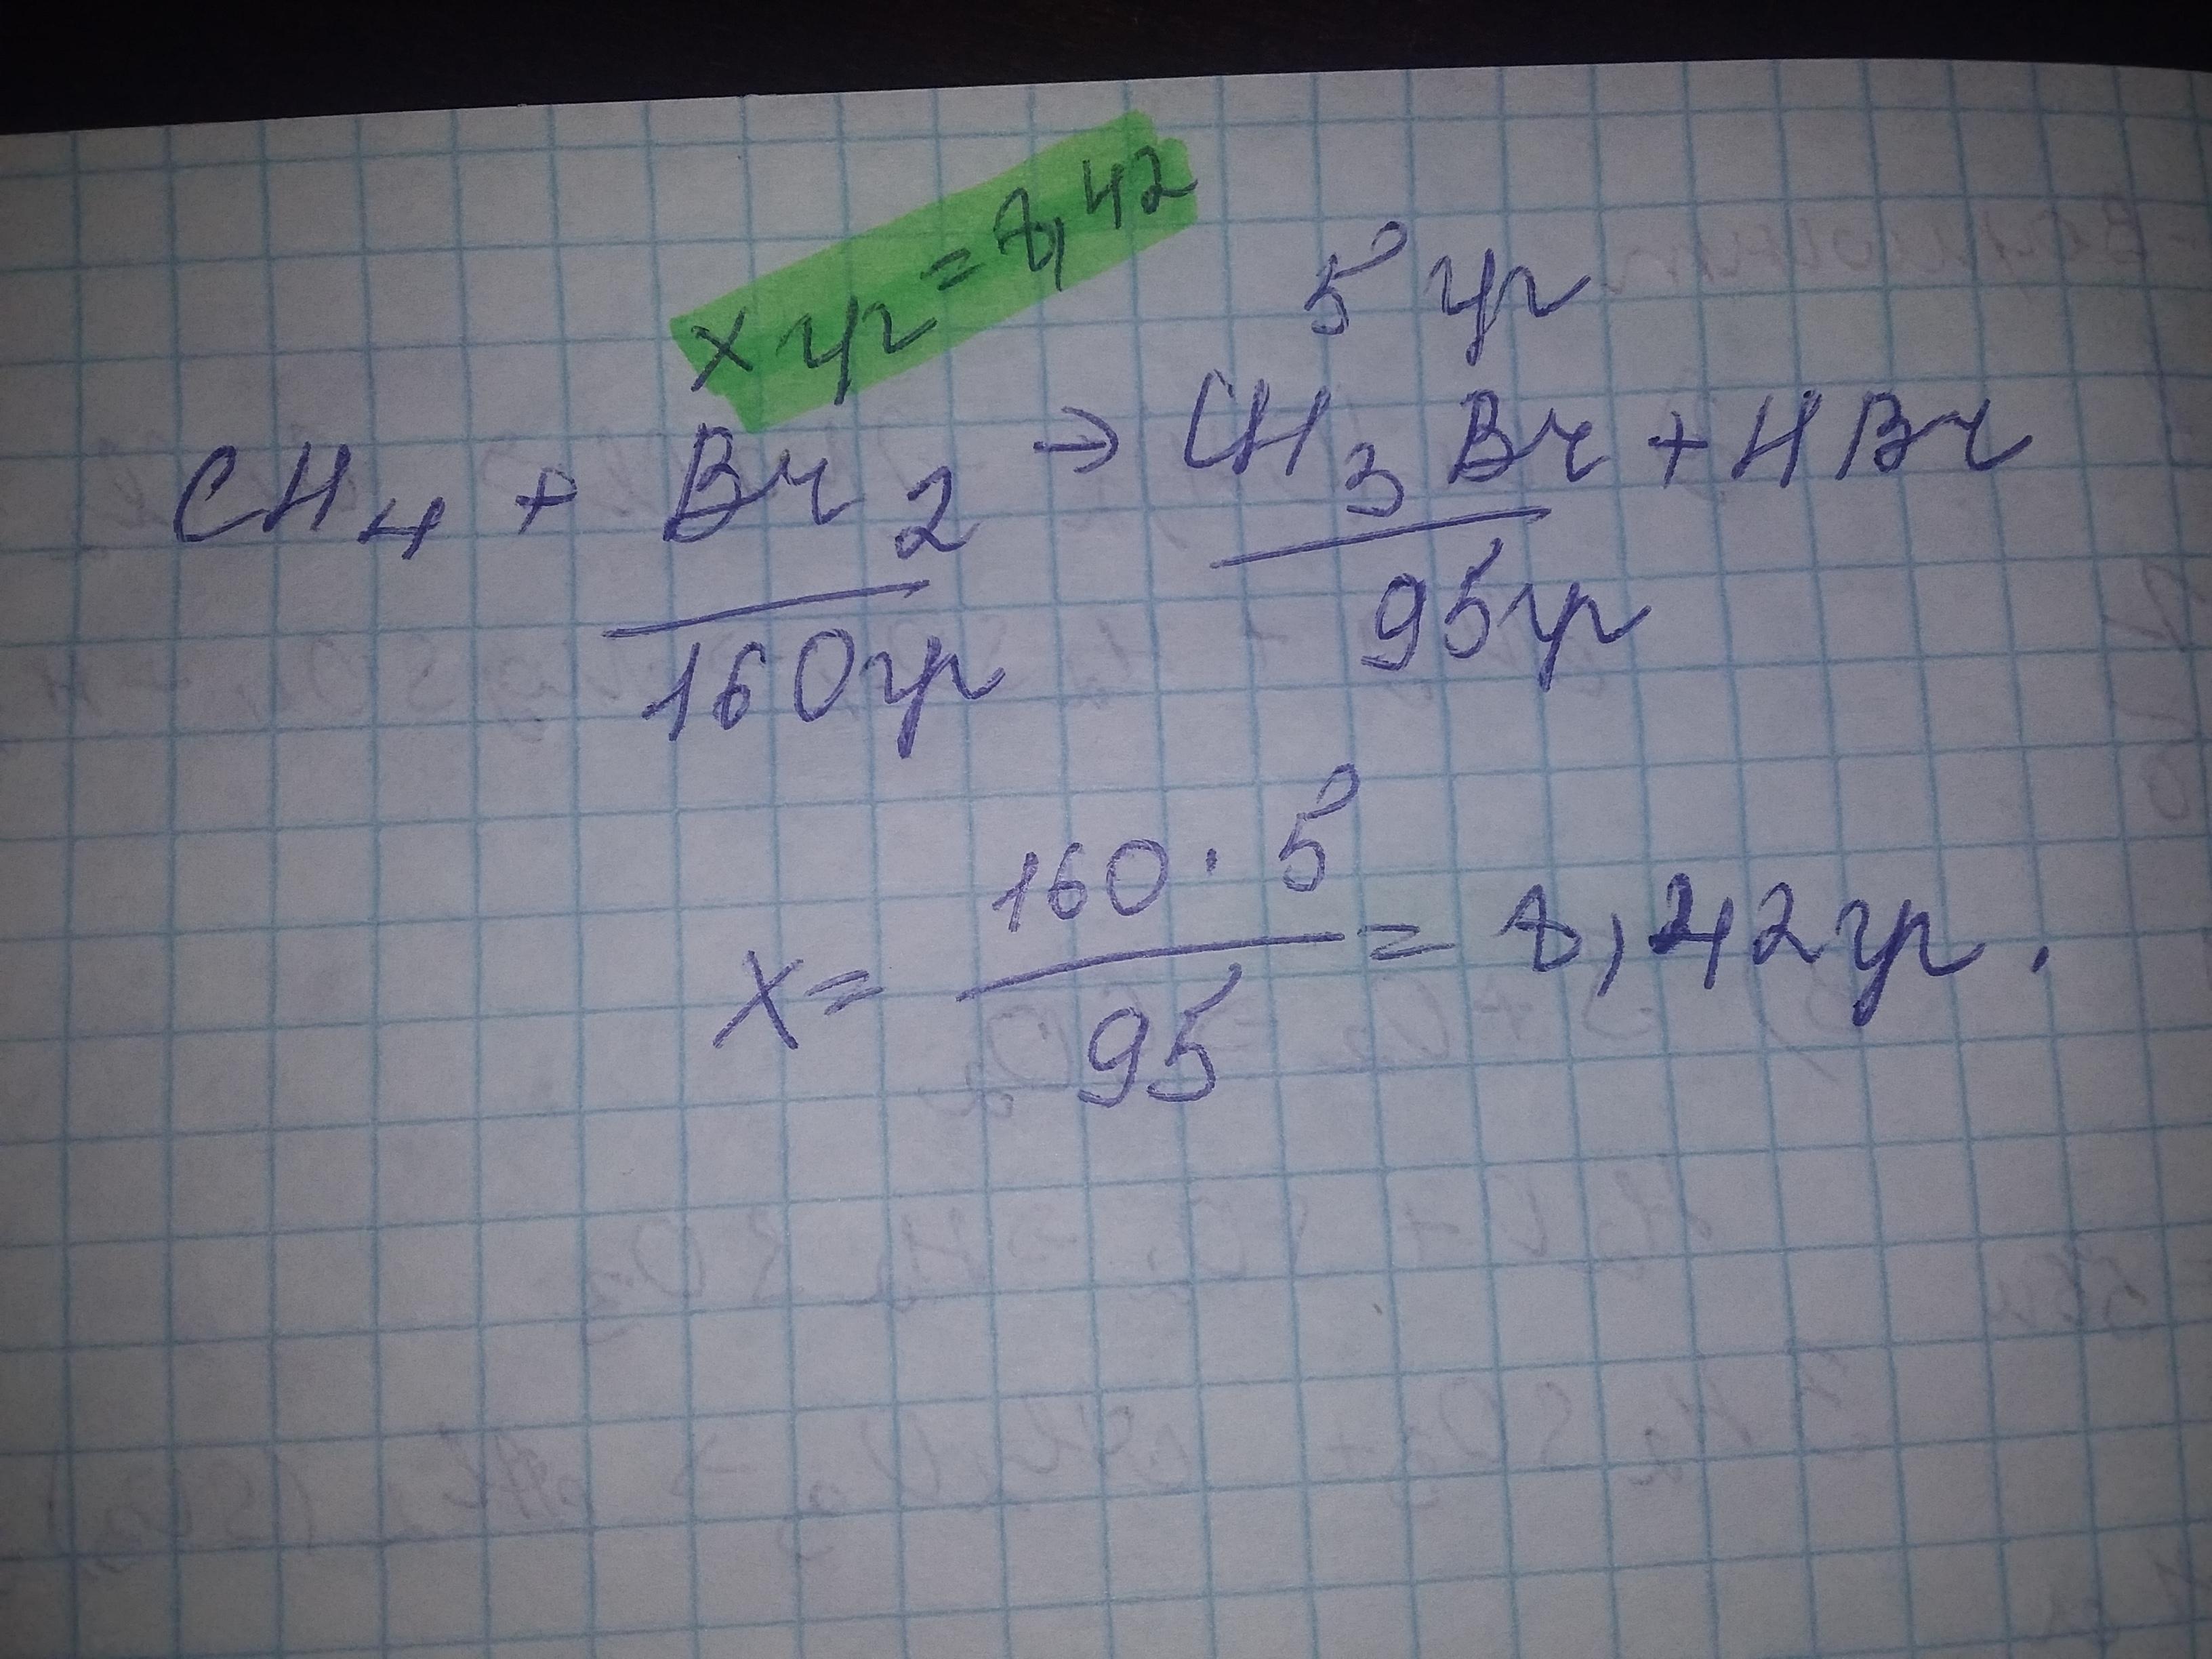 x гр = 8,42
5 гр
CH₄ + Br₂ → CH₃Br + HBr
160 гр 95 гр
160 · 5
x = ――― = 8,42 гр.
95